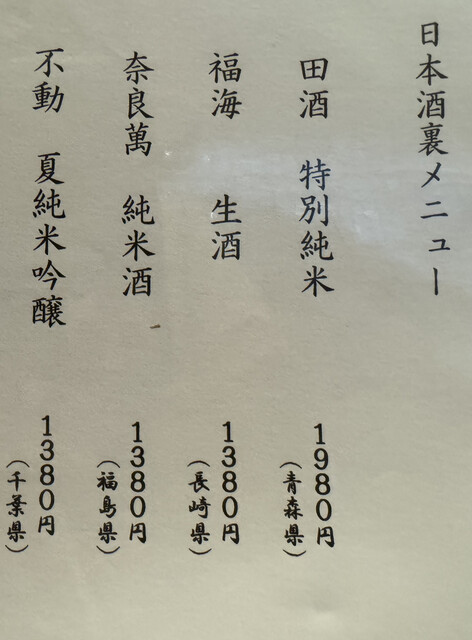 日本酒裏メニュー
田酒 特別純米 1980円
(青森県)
福海 生酒 1380円
(長崎県)
奈良萬 純米酒 1380円
(福島県)
不動 夏純米吟醸 1380円
(千葉県)